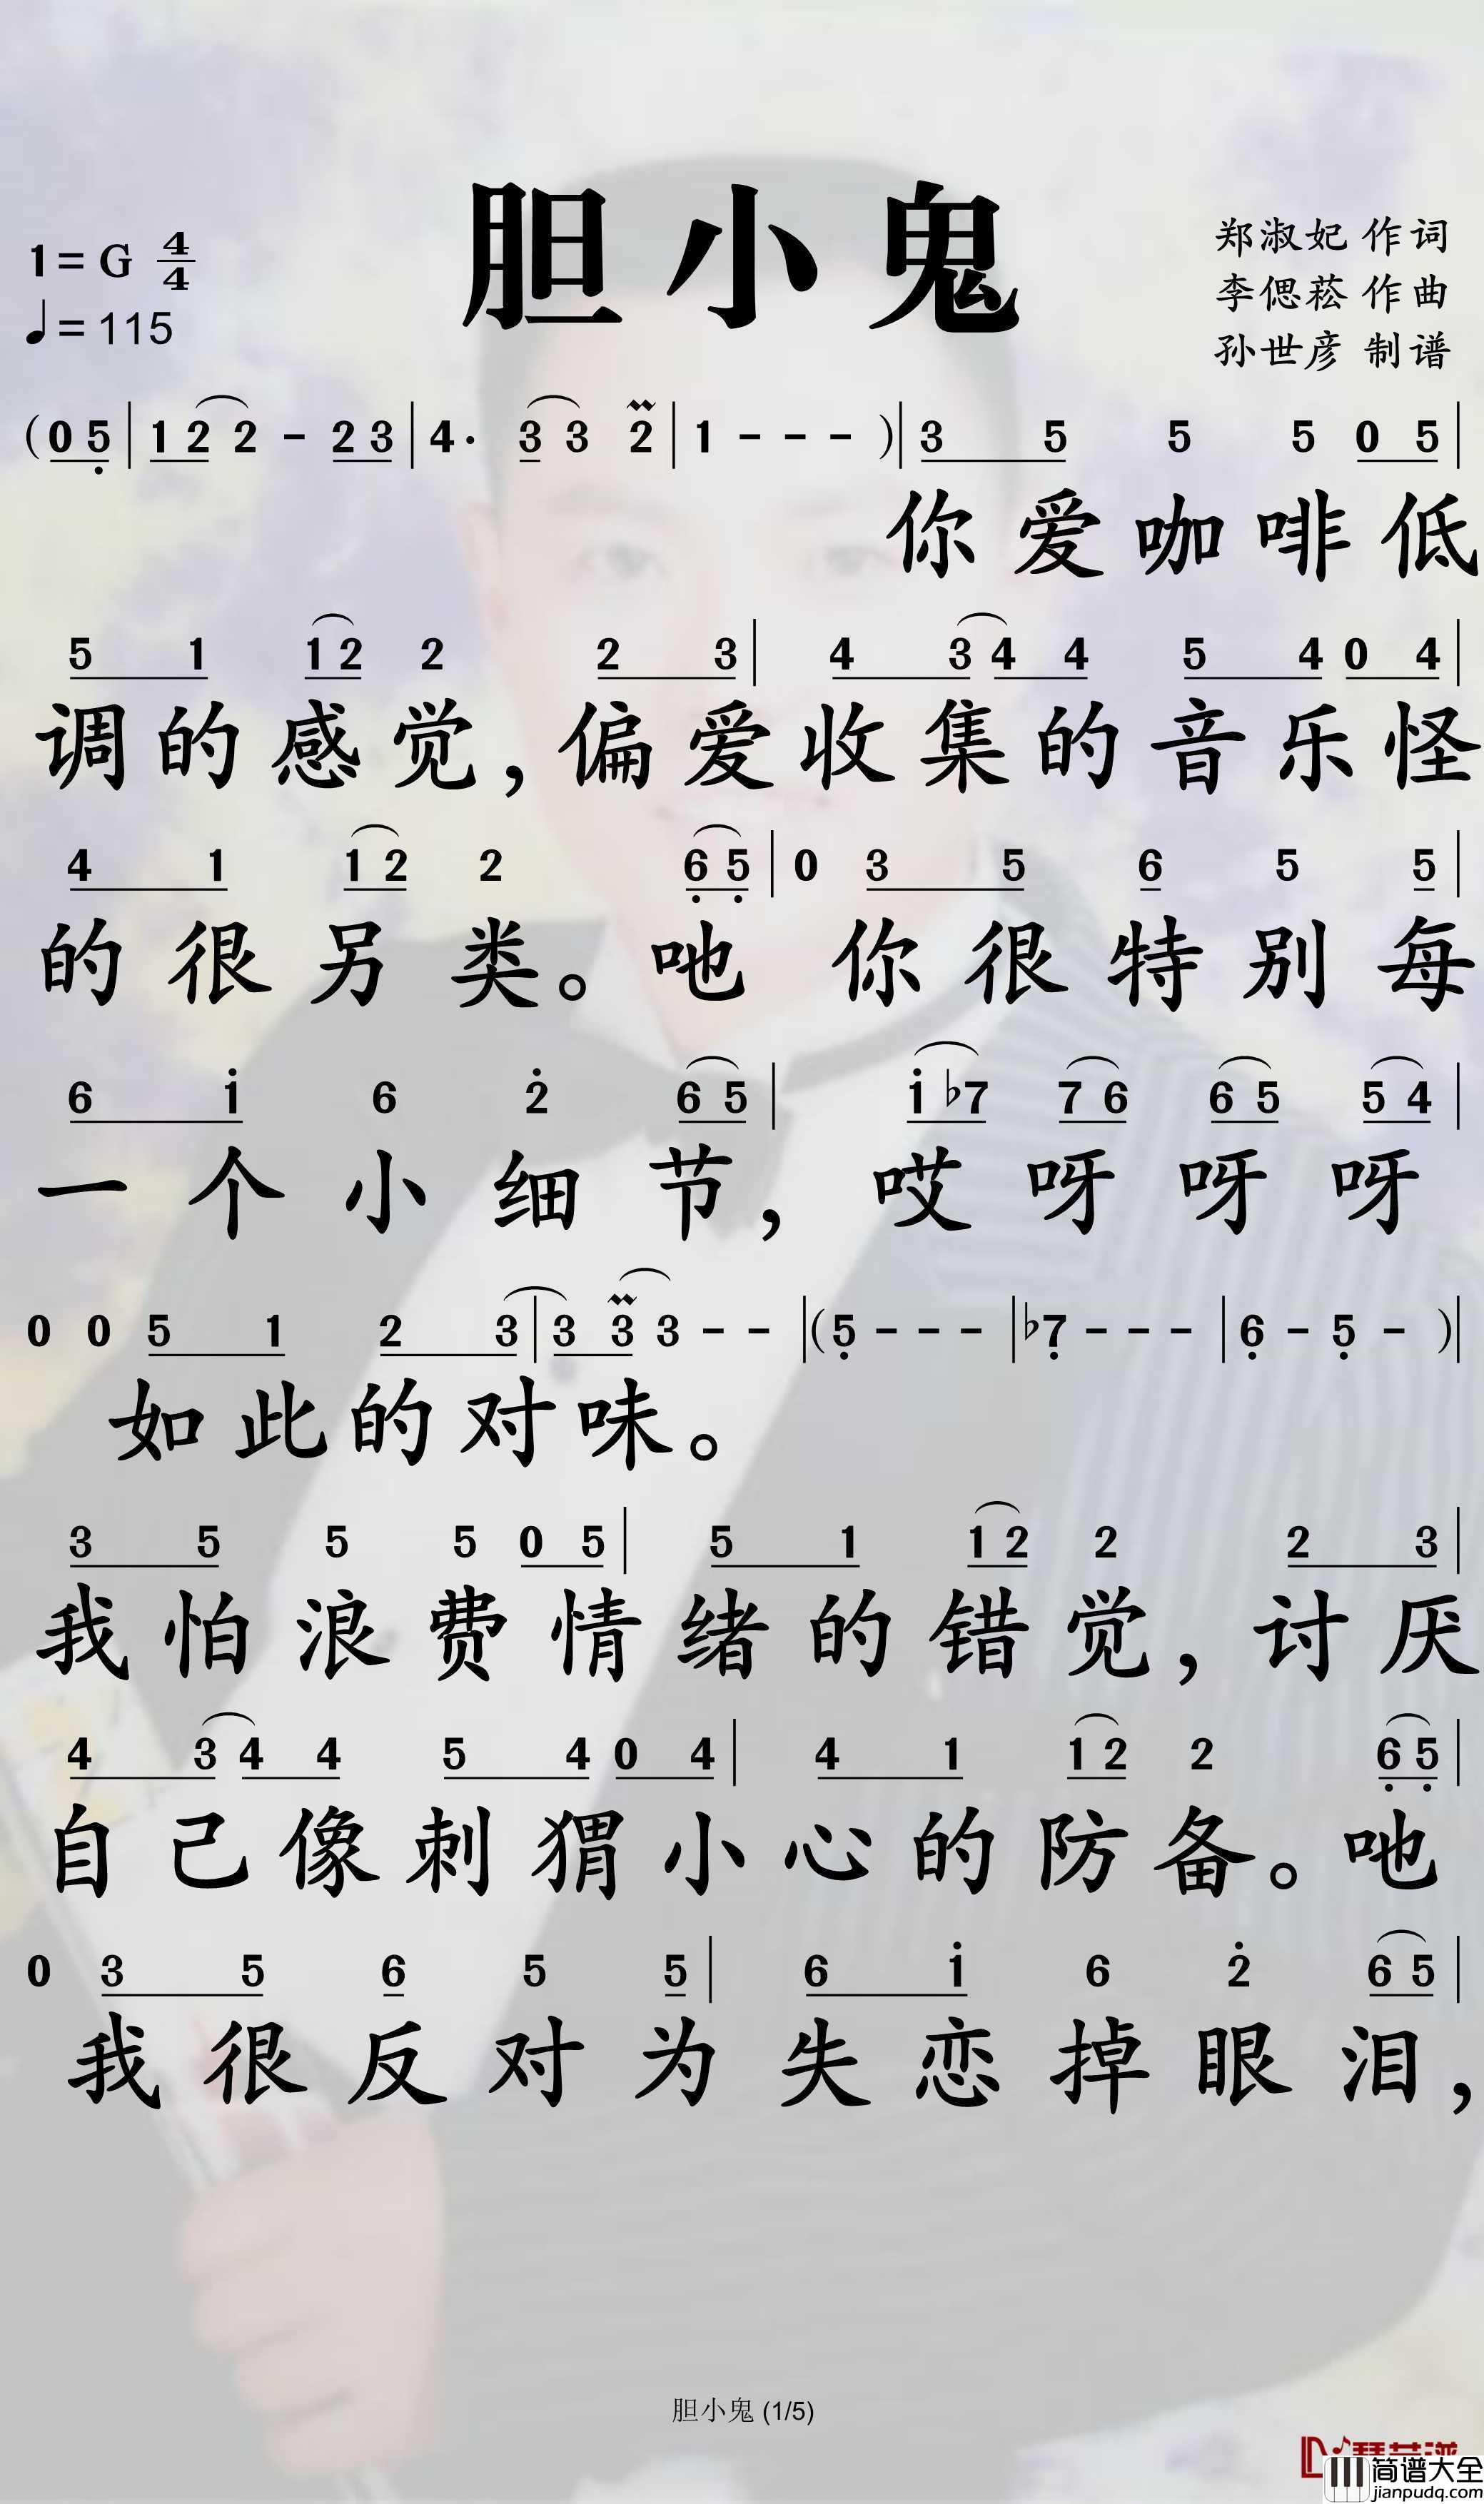 胆小鬼
1=G 4/4
♩=115
郑淑妃 作词
李偲菘 作曲
孙世彦 制谱
(0 5|1 2 2 - 2 3|4· 3 3 2|1 - - - )|3 5 5 5 0 5|
你爱咖啡低
5 1 1 2 2 2 3|4 3 4 4 5 4 0 4|
调的感觉,偏爱收集的音乐怪
4 1 1 2 2 6 5|0 3 5 6 5 5|
的很另类。吔 你很特别每
6 1 6 2 6 5|1 ♭7 7 6 6 5 5 4|
一个小细节,哎呀呀呀
0 0 5 1 2 3|3 3 3 - -|(5 - - -|♭7 - - -|6 - 5 - )|
如此的对味。
3 5 5 5 0 5|5 1 1 2 2 2 3|
我怕浪费情绪的错觉,讨厌
4 3 4 4 5 4 0 4|4 1 1 2 2 6 5|
自己像刺猬小心的防备。吔
0 3 5 6 5 5|6 1 6 2 6 5|
我很反对为失恋掉眼泪,
胆小鬼 (1/5)
简谱大全
jianpudq.com